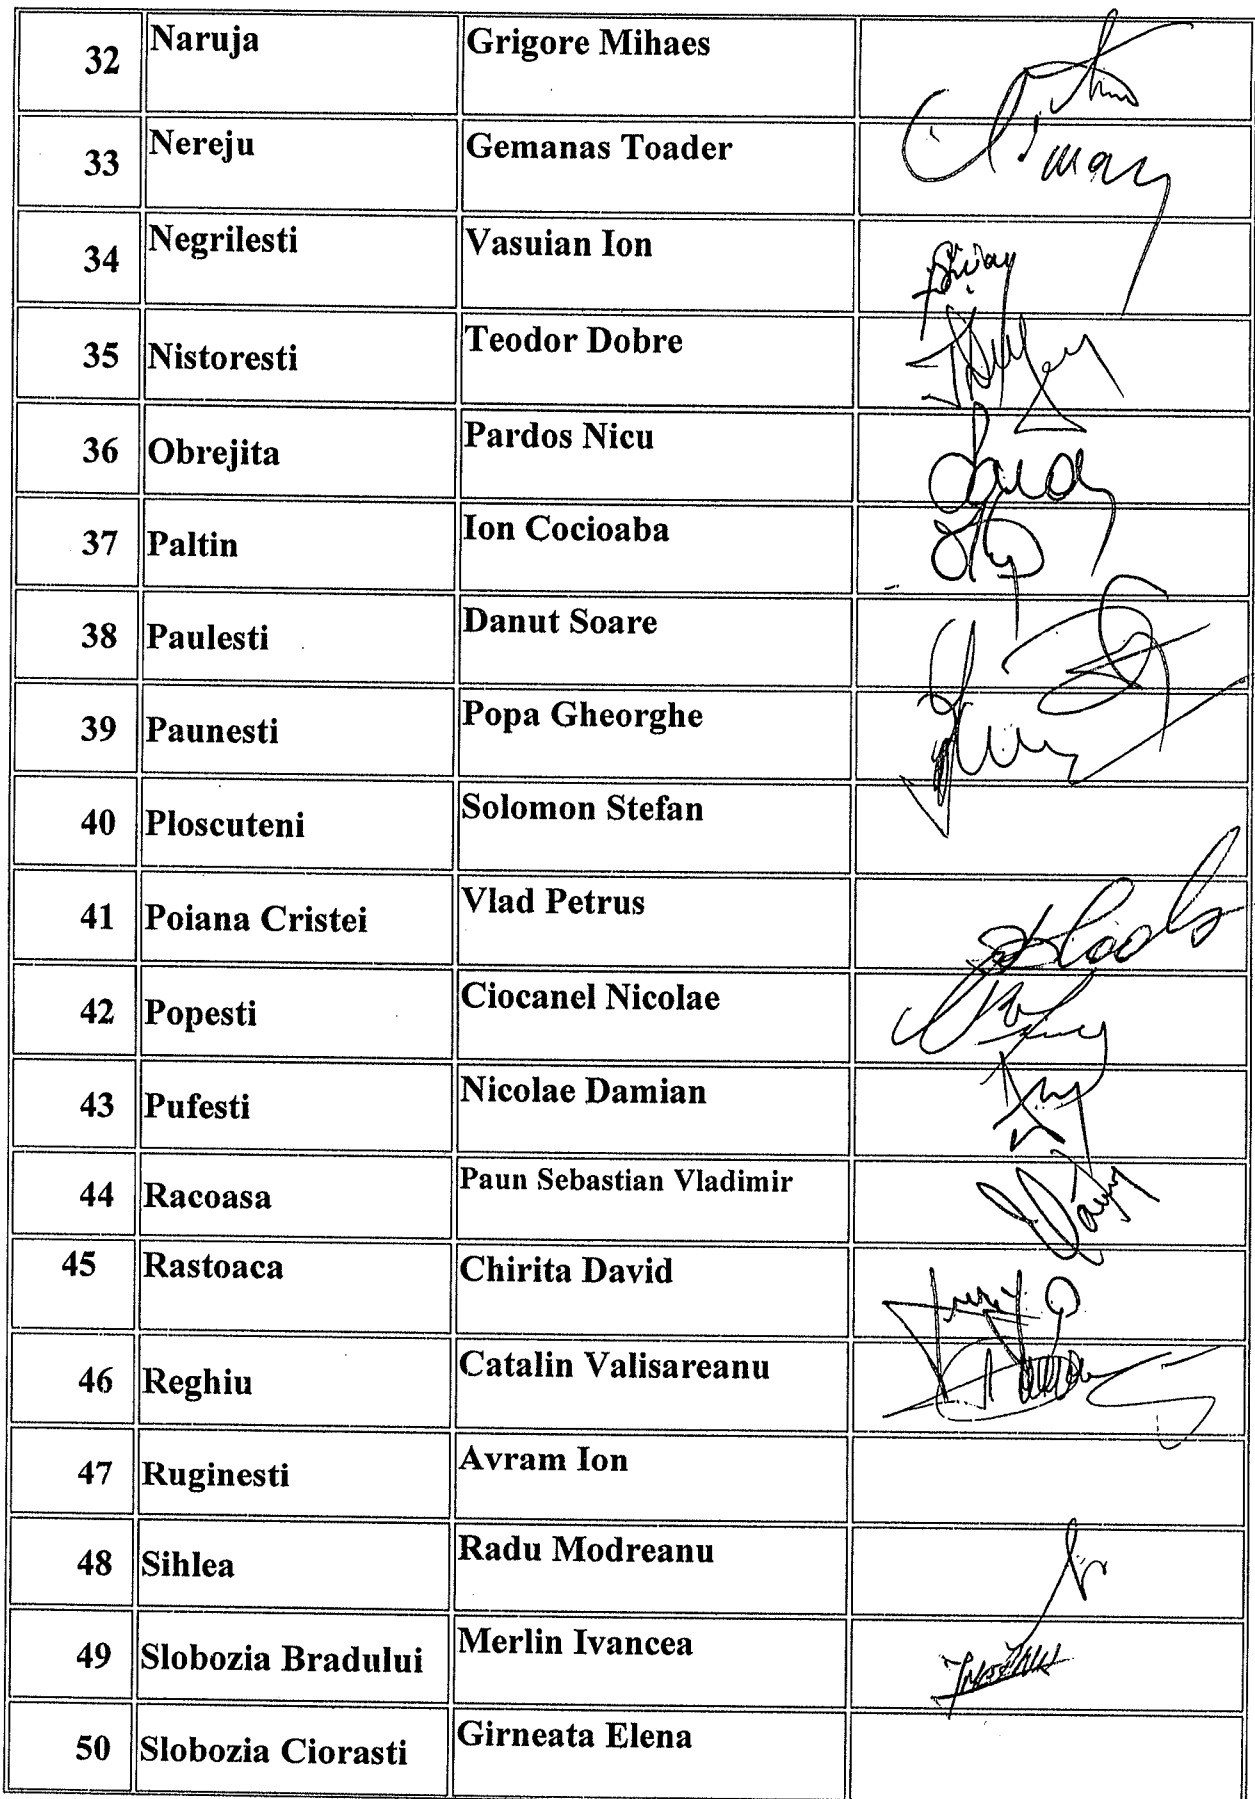 32 Naruja Grigore Mihaes
33 Nereju Gemanas Toader
34 Negrilesti Vasuian Ion
35 Nistoresti Teodor Dobre
36 Obrejita Pardos Nicu
37 Paltin Ion Cocioaba
38 Paulesti Danut Soare
39 Paunesti Popa Gheorghe
40 Ploscuteni Solomon Stefan
41 Poiana Cristei Vlad Petrus
42 Popesti Ciocanel Nicolae
43 Pufesti Nicolae Damian
44 Racoasa Paun Sebastian Vladimir
45 Rastoaca Chirita David
46 Reghiu Catalin Valisareanu
47 Ruginesti Avram Ion
48 Sihlea Radu Modreanu
49 Slobozia Bradului Merlin Ivancea
50 Slobozia Ciorasti Girneata Elena